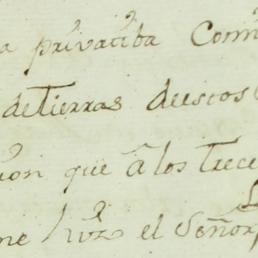 a privatiba Com
de tierras de estos
on que â los trece
ne hvz el Señor